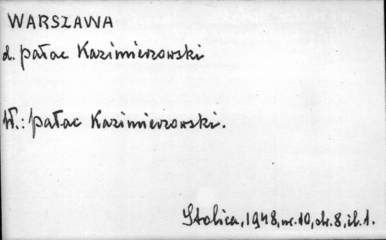 WARSZAWA
d. pałac Kazimierzowski
W.: pałac Kazimierzowski.
Stolica, 1948, nr. 10, str. 8, il. 1.